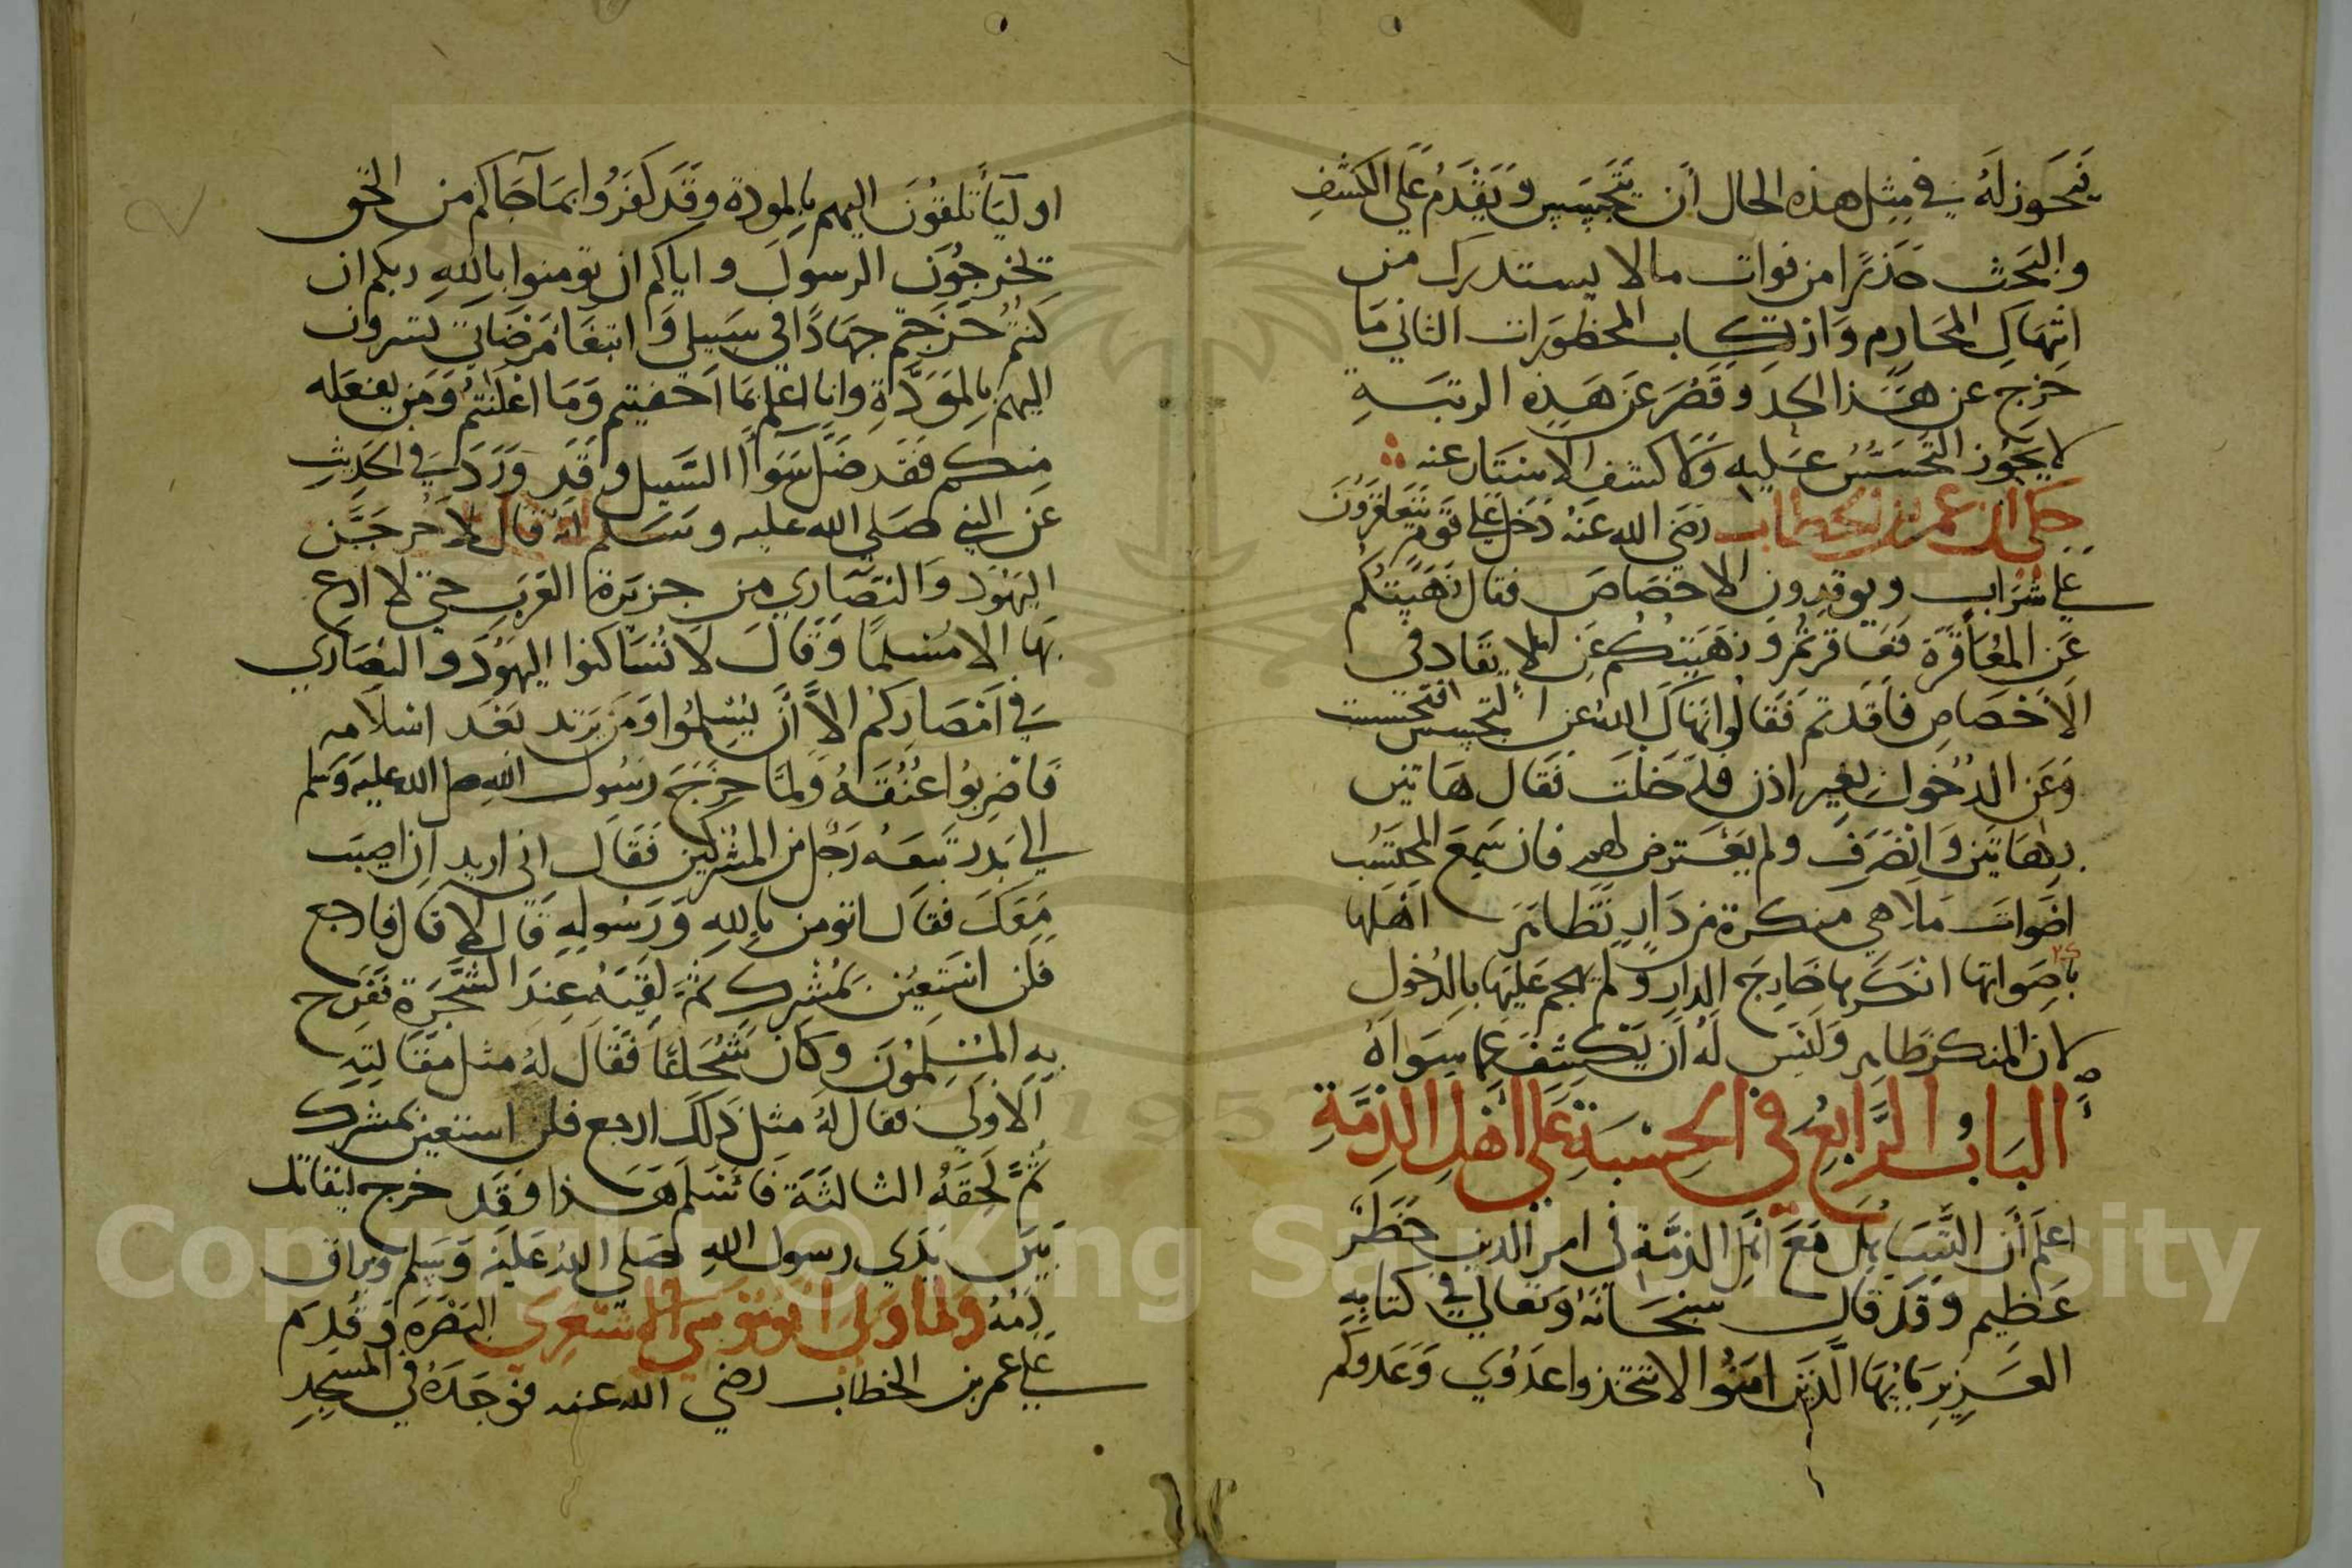 فيجوز له في مثل هذه الحال أن يتجسس ويقدم على الكشف
والبحث حذرا من فوات ما لا يستدرك من
انتهاك المحارم وارتكاب المحظورات الثاني ما
خرج عن هذا الحد وقصر عن هذه الرتبة
لا يجوز التجسس عليه ولا كشف الاستتار عنه
حكي ان عمر بن الخطاب رضي الله عنه دخل على قوم يتعاقرون
على شراب ويوقدون الاخصاص فقال نهيتكم
عن المعاقرة فعاقرتم ونهيتكم عن الايقاد في
الاخصاص فاوقدتم فقالوا نهاك الله عن التجسس فتجسست
وعن الدخول بغير اذن فدخلت فقال هاتين
بهاتين وانصرف ولم يعترض لهم فان سمع المحتسب
اصوات ملاهي منكرة من دار تظاهر اهلها
باصواتها انكرها خارج الدار ولم يهجم عليها بالدخول
لان المنكر ظاهر وليس له أن يكشف عما سواه
الباب الرابع في الحسبة على اهل الذمة
اعلم أن التساهل مع اهل الذمة في امر الدين خطر
عظيم وقد قال سبحانه وتعالى في كتابه
العزيز يايها الذين امنوا لا تتخذوا عدوي وعدوكم
اوليآ تلقون اليهم بالمودة وقد كفروا بما جاكم من الحق
يخرجون الرسول واياكم ان تومنوا بالله ربكم ان
كنتم خرجتم جهادا في سبيلي وابتغا مرضاتي تسرون
اليهم بالمودة وانا اعلم بما اخفيتم وما اعلنتم ومن يفعله
منكم فقد ضل سوآ السبيل وقد ورد في الحديث
عن النبي صلى الله عليه وسلم انه قال لاخرجن
اليهود والنصاري من جزيرة العرب حتى لا ادع
بها الا مسلما وقال لا تساكنوا اليهود والنصاري
في امصاركم الا أن يسلموا ومن يرتد بعد اسلامه
فاضربوا عنقه ولما خرج رسول الله صلى الله عليه وسلم
الى بدر تبعه رجل من المشركين فقال اني اريد ان اصيب
معك فقال اتومن بالله ورسوله قال لا قال فارجع
فلن استعين بمشرك ثم لقيه عند الشجرة ففرح
به المسلمون وكان شجاعا فقال له مثل مقالته
الاولى فقال له مثل ذلك ارجع فلن استعين بمشرك
ثم لحقه الثالثة فاسلم هذا وقد خرج ليقاتل
بين يدي رسول الله صلى الله عليه وسلم ويراق
دمه ولما ولى ابو موسى الاشعري البصرة وقدم
على عمر بن الخطاب رضي الله عنه فوجده في المسجد
Copyright © King Saud University
1957